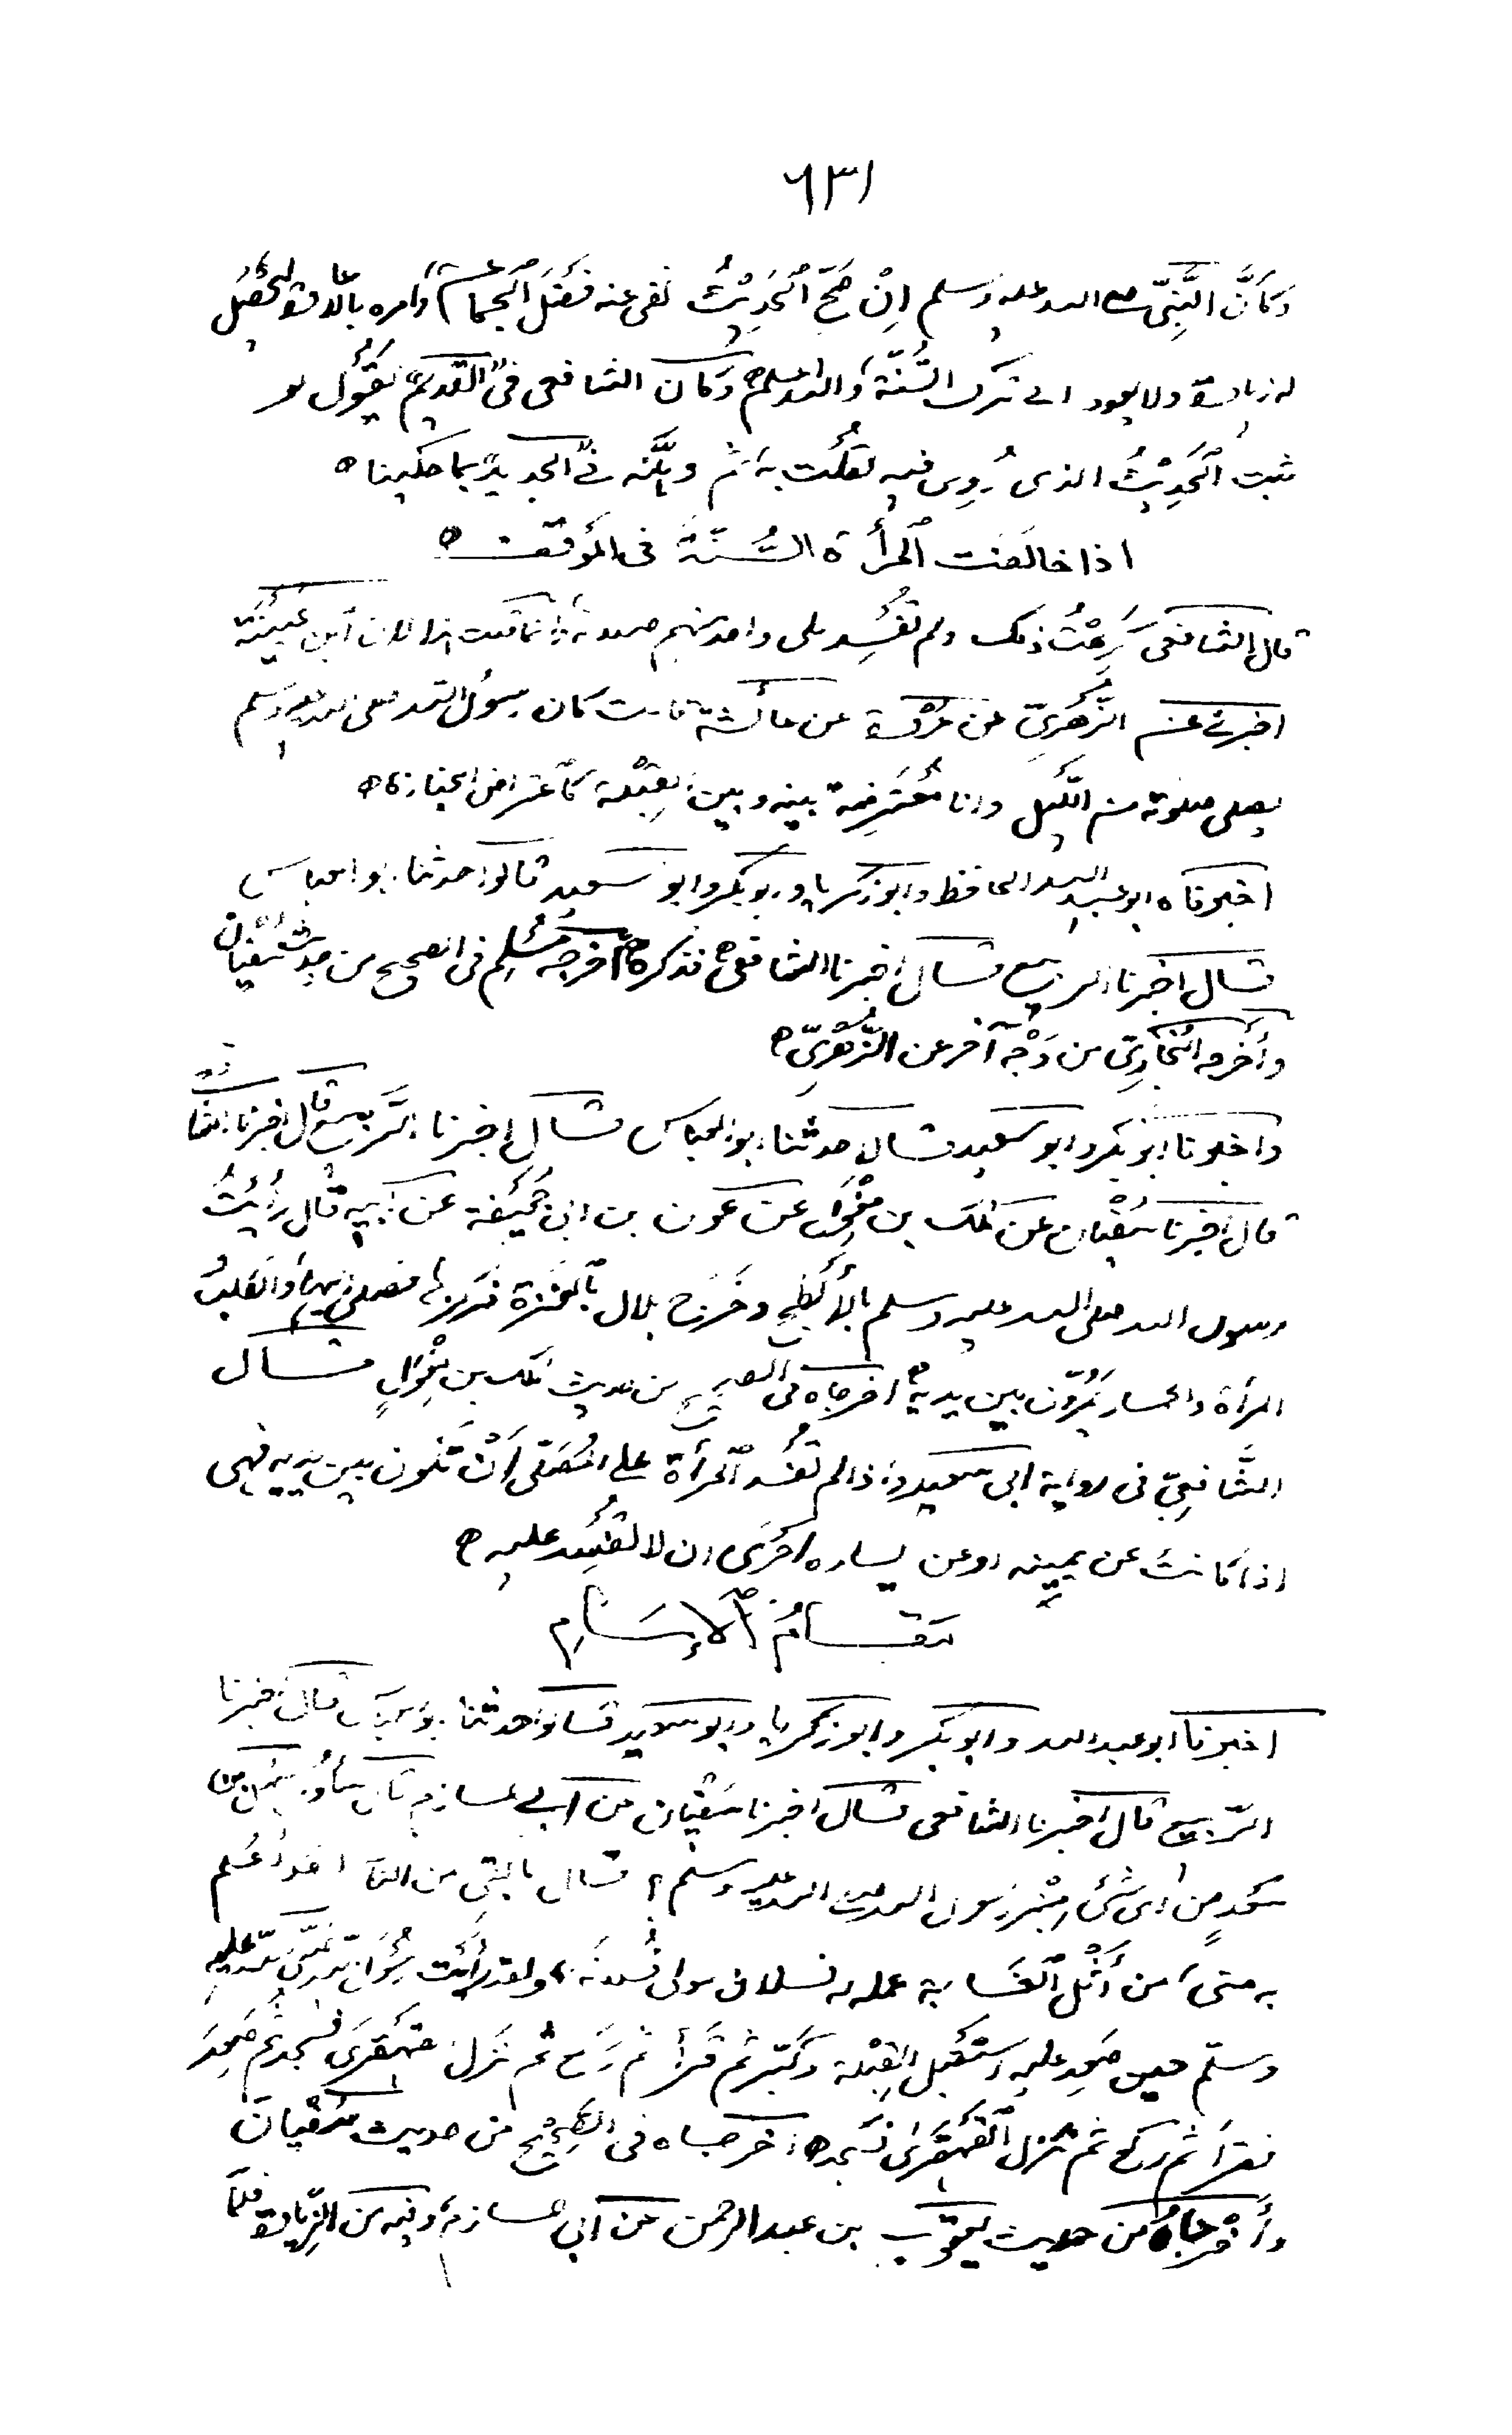 ٦٣١
وكَأَنَّ النَّبِيّ صلى الله عليه وسلم اِنْ صَحَّ الْحَدِيْثُ نفى عنه فَضْلَ الْجماعة وامره بالاعادة ليحصل
له زيادة ولا يعود الى ترك السُّنَّة والله اعلم وكان الشافعى فى القديم يَقُوْل لو
ثبت الْحَدِيْثُ الذى رُوِى فيه لقُلْت به ثم فى الجديد بما حكينا
اذا خالفت المرأة السُّنَّةَ فى المَوقف
قال الشافعى كَرِهْتُ ذلك ولم تُفْسِد على واحد منهم صلوته وانما قلت هذا لان ابن عُيَيْنَة
اخبرنى عن الزُّهْرِيّ عن عُرْوَة عن عائشة قالت كان رسول الله صلى الله عليه وسلم
يصلى صلوته من اللَّيْل وانا مُعْتَرِضة بينه وبين القِبْلة كاعتراض الجنازة
اخبرناه ابو عبد الله الحافظ وابو زكريا وابو بكر وابو سعيد قالوا حدثنا ابو العباس
قال اخبرنا الربيع قال اخبرنا الشافعى فذكره اخرجه مُسْلِم فى الصحيح من حديث سُفْيان
وأَخرجه البُخَارِيّ من وَجْه آخر عن الزُّهْرِيّ
واخبرنا ابو بكر وابو سعيد قال حدثنا ابو العباس قال اخبرنا الرَّبيع قال اخبرنا الشا
قال اخبرنا سُفْيان عن مالك بن مِغْوَل عن عون بن ابى جُحَيْفَة عن ابيه قال رَأَيْتُ
رسول الله صلى الله عليه وسلم بالأَبْطَحِ وخَرَجَ بلال بالعَنَزَة فركزها فصلى اليها والكلب
المرأة والحمار يَمُرّون بين يديه اخرجاه فى الصحيح من حديث مالك بن مِغْوَلٍ قال
الشَّافِعِيّ فى رواية ابى سعيد واذا لم تُفْسِد المرأة على المُصَلّى اَنْ تَكون بين يديه فهى
اذا كانت عن يمينه او عن يساره اَحْرَى ان لا تُفْسِد عليه
مَقَامُ الْإِمَامِ
اخبرنا ابو عبد الله وابو بكر وابو زكريا وابو سعيد قالوا حدثنا ابو العباس قال اخبرنا
الرّبيع قال اخبرنا الشافعى قال اخبرنا سُفْيان عن ابى حازم قال سألوا سهل بن
سَعْدٍ مِن اى شئ مِنْبَر رسول الله صلى الله عليه وسلم؟ قال ما بقى من الناس احد اَعْلم
به منى، من أَثْل الغَابة عمله له فلان مولى فُلانة، ولقد رأَيْت رسُوْل الله صلّى الله عليه
وسلّم حين صَعِد عليه اسْتَقْبَل القِبْلة وكَبّر ثم قَرَأَ ثم رَكَع ثم نَزَلَ قَهْقَرَى فسَجد ثم صَعِدَ
فقرأ ثم ركع ثم نزل القَهْقَرى فسَجد اخرجاه فى الصحيح من حديث سُفْيانَ
وأَخْرجاهُ من حديث يعقوب بن عبد الرحمن عن ابى حازم، وفيه من الزِّيادة فلما